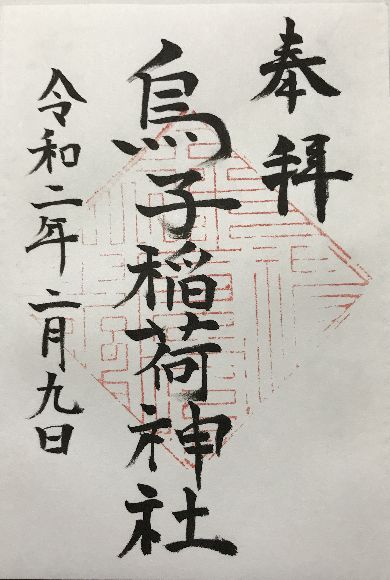 奉拜
烏子稲荷神社
令和二年二月九日